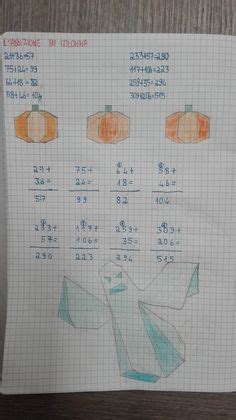 L'ADDIZIONE IN COLONNA
21+36=57 233+57=290
75+24=99 117+106=223
64+18=82 259+35=294
58+46=104 309+206=515
21+ 75+ 64+ 58+
36= 24= 18= 46=
57 99 82 104
233+ 117+ 259+ 309+
57= 106= 35= 206=
290 223 294 515